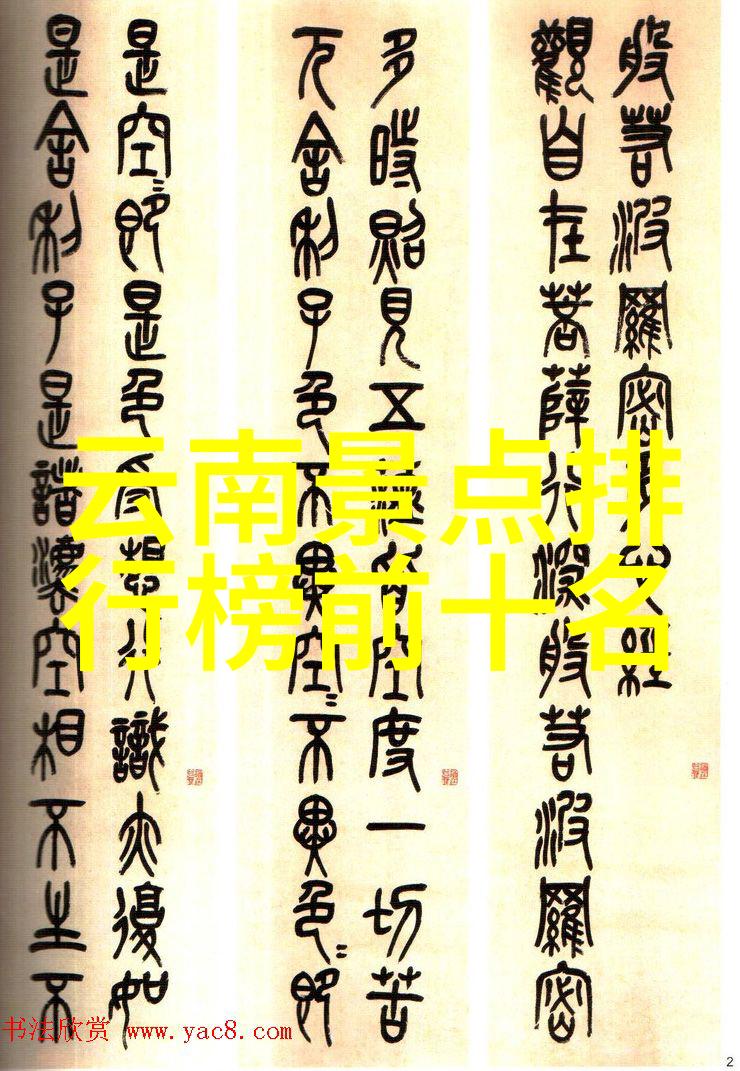 般若波羅密多心經
觀自在菩薩行深般若波羅密
多時照見五蘊皆空度一切苦
厄舍利子色不異空〻不異色〻即
是空〻即是色受想行識亦復如
是舍利子是諸法空相不生不
云南景点排
行榜前十名
书法欣赏 www.yac8.com
2